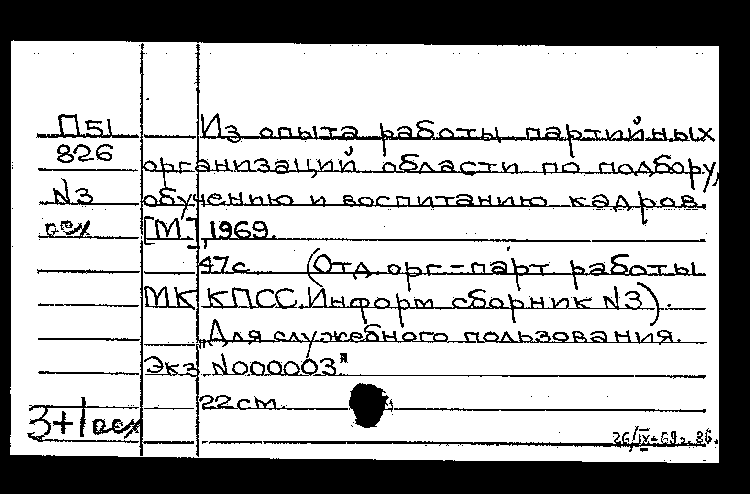 П51 Из опыта работы партийных
826 организаций области по подбору,
N3 обучению и воспитанию кадров.
осх [М.], 1969.
47с (Отд. орг-парт работы
МК КПСС. Информ сборник N3).
„Для служебного пользования.
Экз N000003"
22см.
3+1осх
26/IX-69г.